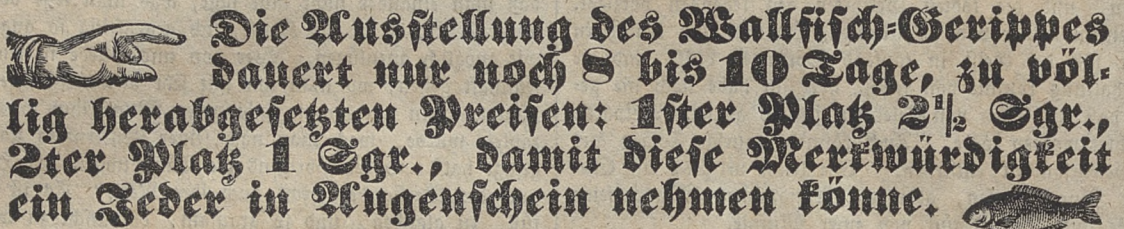 Die Ausstellung des Wallfisch-Gerippes
dauert nur noch 8 bis 10 Tage, zu völ-
lig herabgesetzten Preisen: 1ster Platz 2½ Sgr.,
2ter Platz 1 Sgr., damit diese Merkwürdigkeit
ein Jeder in Augenschein nehmen könne.